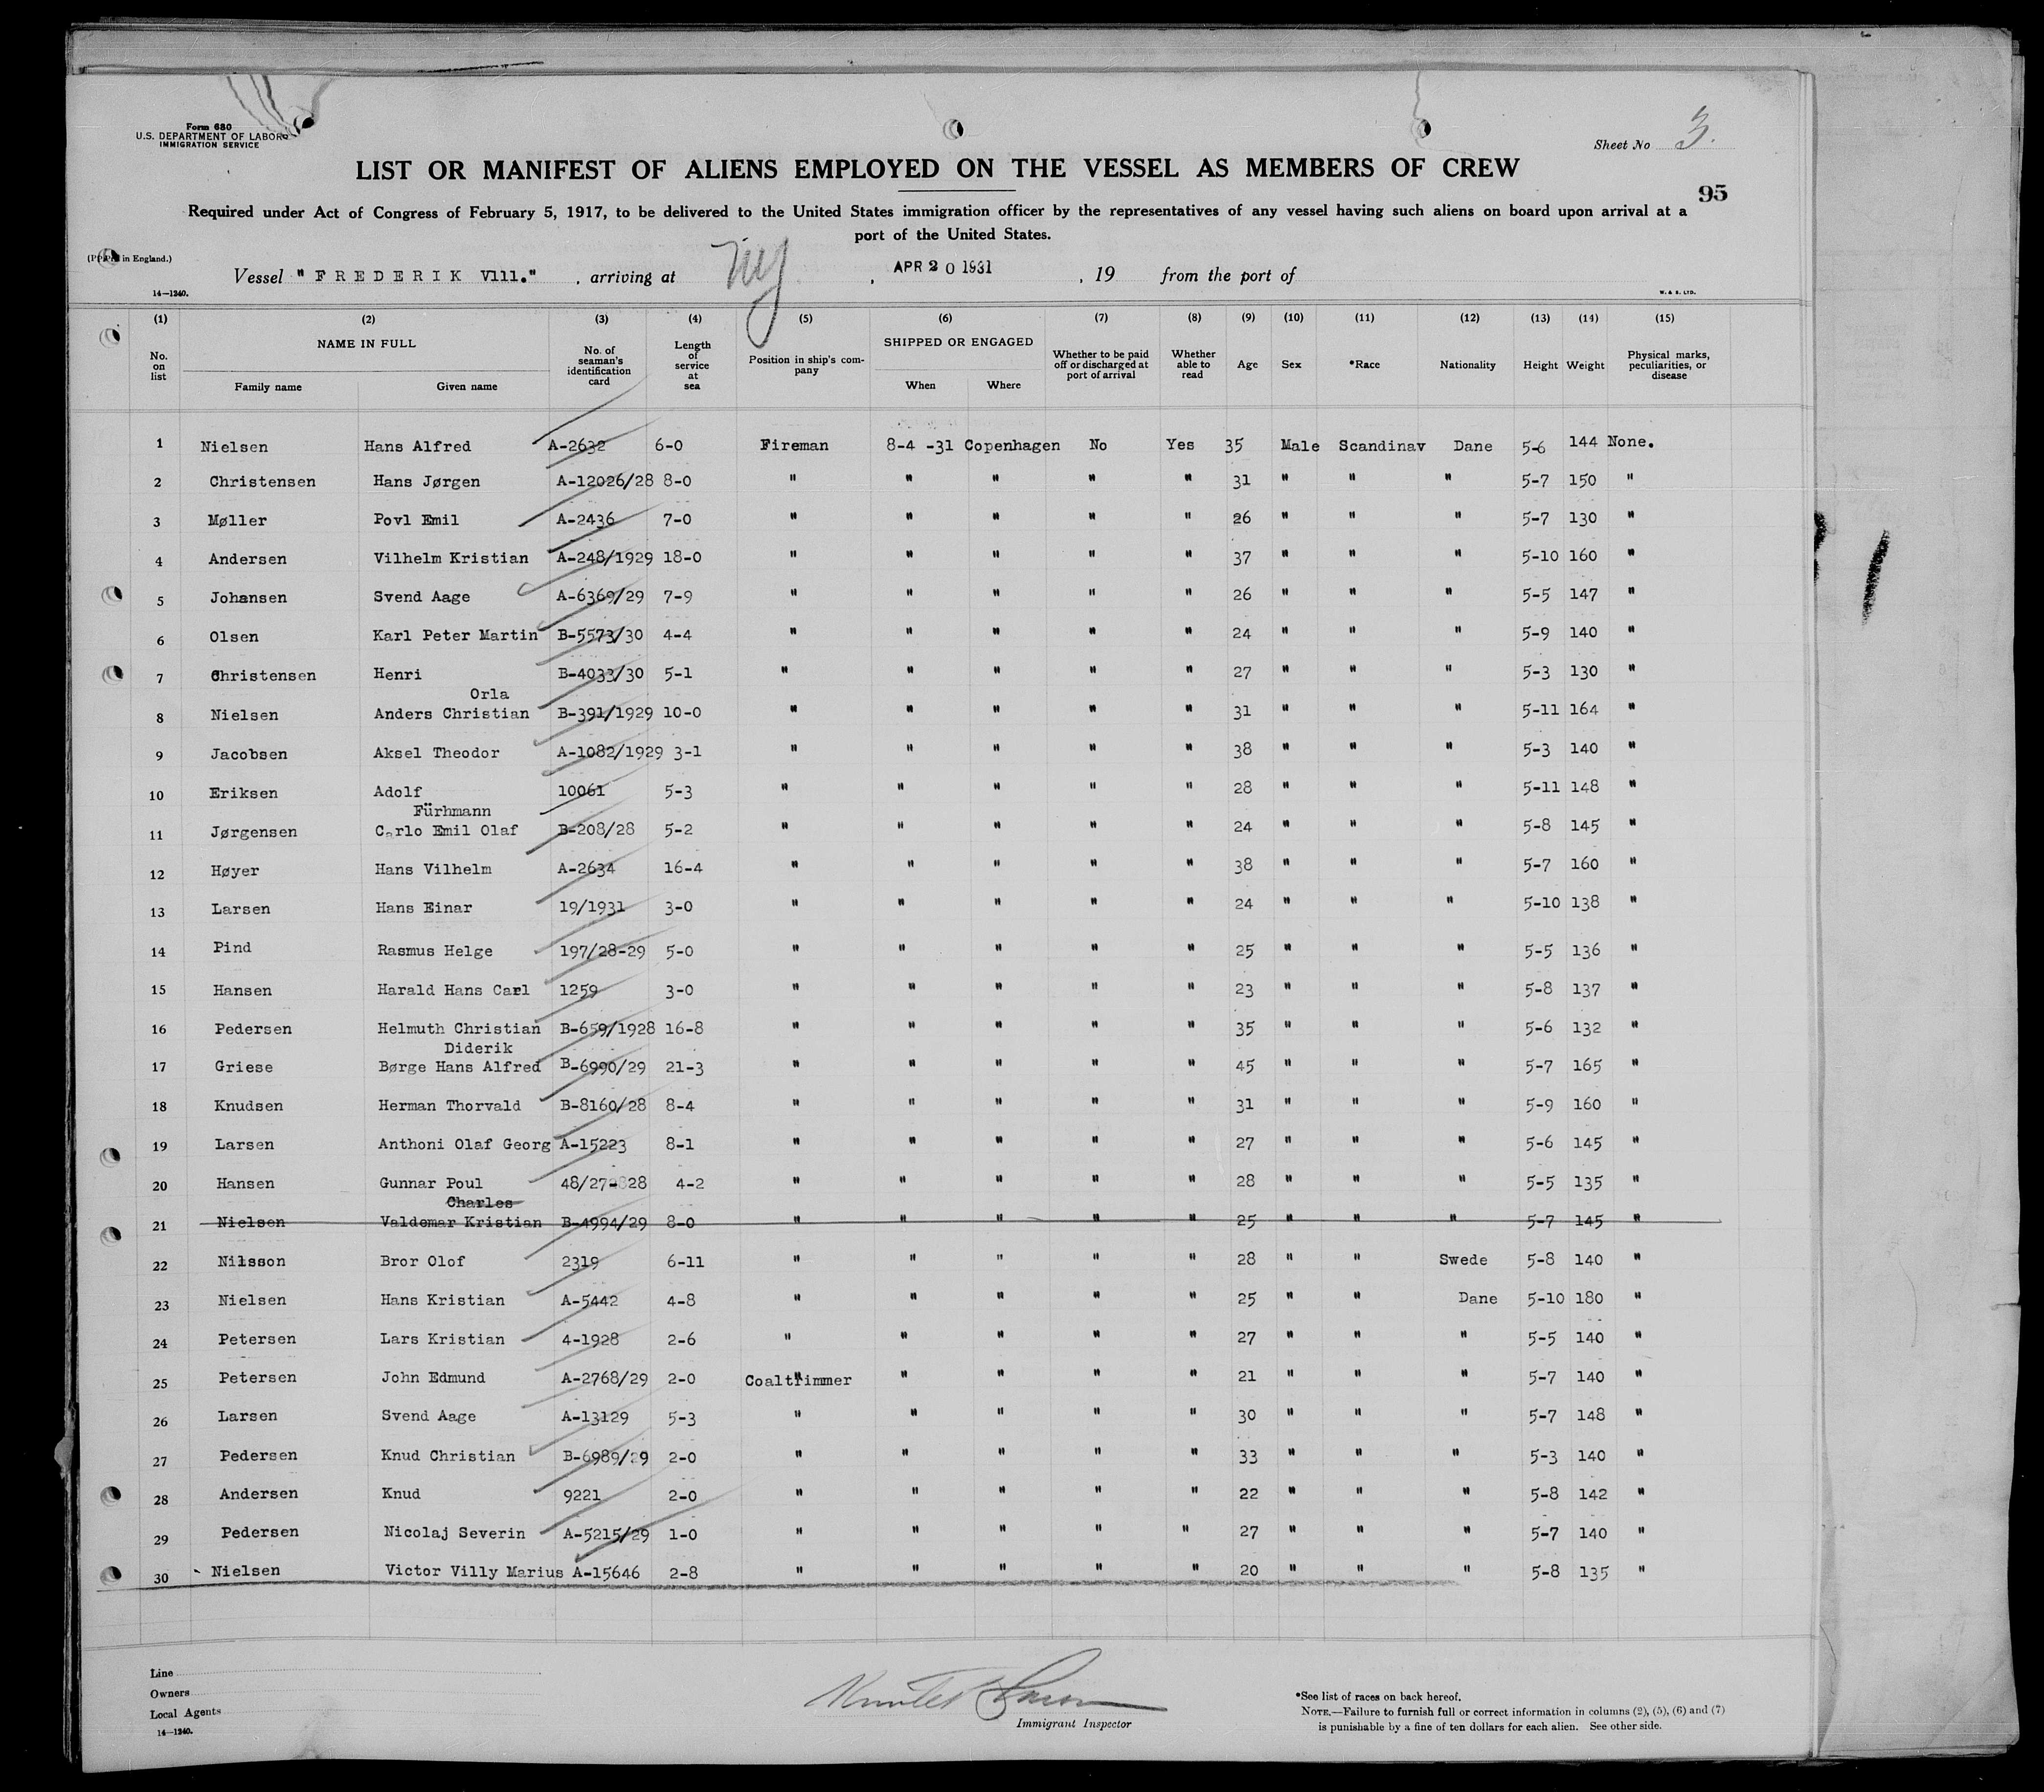 Form 680
U.S. DEPARTMENT OF LABOR
IMMIGRATION SERVICE
Sheet No 3.
LIST OR MANIFEST OF ALIENS EMPLOYED ON THE VESSEL AS MEMBERS OF CREW
95
Required under Act of Congress of February 5, 1917, to be delivered to the United States immigration officer by the representatives of any vessel having such aliens on board upon arrival at a
port of the United States.
in England.)
Vessel "FREDERIK Vlll." , arriving at NY , APR 20 1931 , 19 from the port of
14—1240. W. & S. LTD.
(1) (2) (3) (4) (5) (6) (7) (8) (9) (10) (11) (12) (13) (14) (15)
No. on list NAME IN FULL Family name Given name No. of seaman's identification card Length of service at sea Position in ship's company SHIPPED OR ENGAGED When Where Whether to be paid off or discharged at port of arrival Whether able to read Age Sex *Race Nationality Height Weight Physical marks, peculiarities, or disease
1 Nielsen Hans Alfred A-2632 6-0 Fireman 8-4 -31 Copenhagen No Yes 35 Male Scandinav Dane 5-6 144 None.
2 Christensen Hans Jørgen A-12026/28 8-0 " " " " " 31 " " " 5-7 150 "
3 Møller Povl Emil A-2436 7-0 " " " " " 26 " " " 5-7 130 "
4 Andersen Vilhelm Kristian A-248/1929 18-0 " " " " " 37 " " " 5-10 160 "
5 Johansen Svend Aage A-6369/29 7-9 " " " " " 26 " " " 5-5 147 "
6 Olsen Karl Peter Martin B-5573/30 4-4 " " " " " 24 " " " 5-9 140 "
7 Christensen Henri B-4033/30 5-1 " " " " " 27 " " " 5-3 130 "
Orla
8 Nielsen Anders Christian B-391/1929 10-0 " " " " " 31 " " " 5-11 164 "
9 Jacobsen Aksel Theodor A-1082/1929 3-1 " " " " " 38 " " " 5-3 140 "
10 Eriksen Adolf 10061 5-3 " " " " " 28 " " " 5-11 148 "
Fürhmann
11 Jørgensen Carlo Emil Olaf B-208/28 5-2 " " " " " 24 " " " 5-8 145 "
12 Høyer Hans Vilhelm A-2634 16-4 " " " " " 38 " " " 5-7 160 "
13 Larsen Hans Einar 19/1931 3-0 " " " " " 24 " " " 5-10 138 "
14 Pind Rasmus Helge 197/28-29 5-0 " " " " " 25 " " " 5-5 136 "
15 Hansen Harald Hans Carl 1259 3-0 " " " " " 23 " " " 5-8 137 "
16 Pedersen Helmuth Christian B-659/1928 16-8 " " " " " 35 " " " 5-6 132 "
Diderik
17 Griese Børge Hans Alfred B-6990/29 21-3 " " " " " 45 " " " 5-7 165 "
18 Knudsen Herman Thorvald B-8160/28 8-4 " " " " " 31 " " " 5-9 160 "
19 Larsen Anthoni Olaf Georg A-15223 8-1 " " " " " 27 " " " 5-6 145 "
20 Hansen Gunnar Poul 48/27-28 4-2 " " " " " 28 " " " 5-5 135 "
Charles
21 Nielsen Valdemar Kristian B-4994/29 8-0 " " " " " 25 " " " 5-7 145 "
22 Nilsson Bror Olof 2319 6-11 " " " " " 28 " " Swede 5-8 140 "
23 Nielsen Hans Kristian A-5442 4-8 " " " " " 25 " " Dane 5-10 180 "
24 Petersen Lars Kristian 4-1928 2-6 " " " " " 27 " " " 5-5 140 "
25 Petersen John Edmund A-2768/29 2-0 Coaltrimmer " " " " 21 " " " 5-7 140 "
26 Larsen Svend Aage A-13129 5-3 " " " " " 30 " " " 5-7 148 "
27 Pedersen Knud Christian B-6989/29 2-0 " " " " " 33 " " " 5-3 140 "
28 Andersen Knud 9221 2-0 " " " " " 22 " " " 5-8 142 "
29 Pedersen Nicolaj Severin A-5215/29 1-0 " " " " " 27 " " " 5-7 140 "
30 Nielsen Victor Villy Marius A-15646 2-8 " " " " " 20 " " " 5-8 135 "
Line
Owners
Local Agents
14—1240.
Immigrant Inspector
*See list of races on back hereof.
NOTE.—Failure to furnish full or correct information in columns (2), (5), (6) and (7)
is punishable by a fine of ten dollars for each alien. See other side.